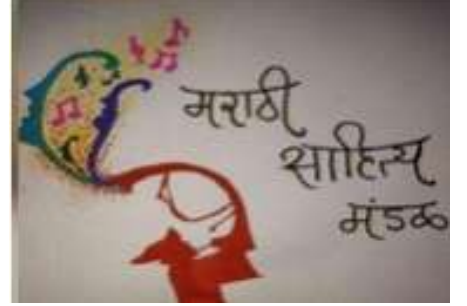 मराठी
साहित्य
मंडळ